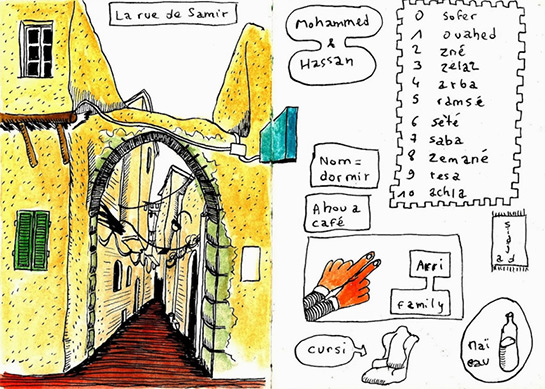 La rue de Samir
Mohammed
&
Hassan
0 sofer
1 ouahed
2 zné
3 zelaz
4 arba
5 ramsé
6 sété
7 saba
8 zemané
9 tesa
10 achla
Nom =
dormir
Ahoua
café
Arri
family
sidjad
cursi
Maï
eau